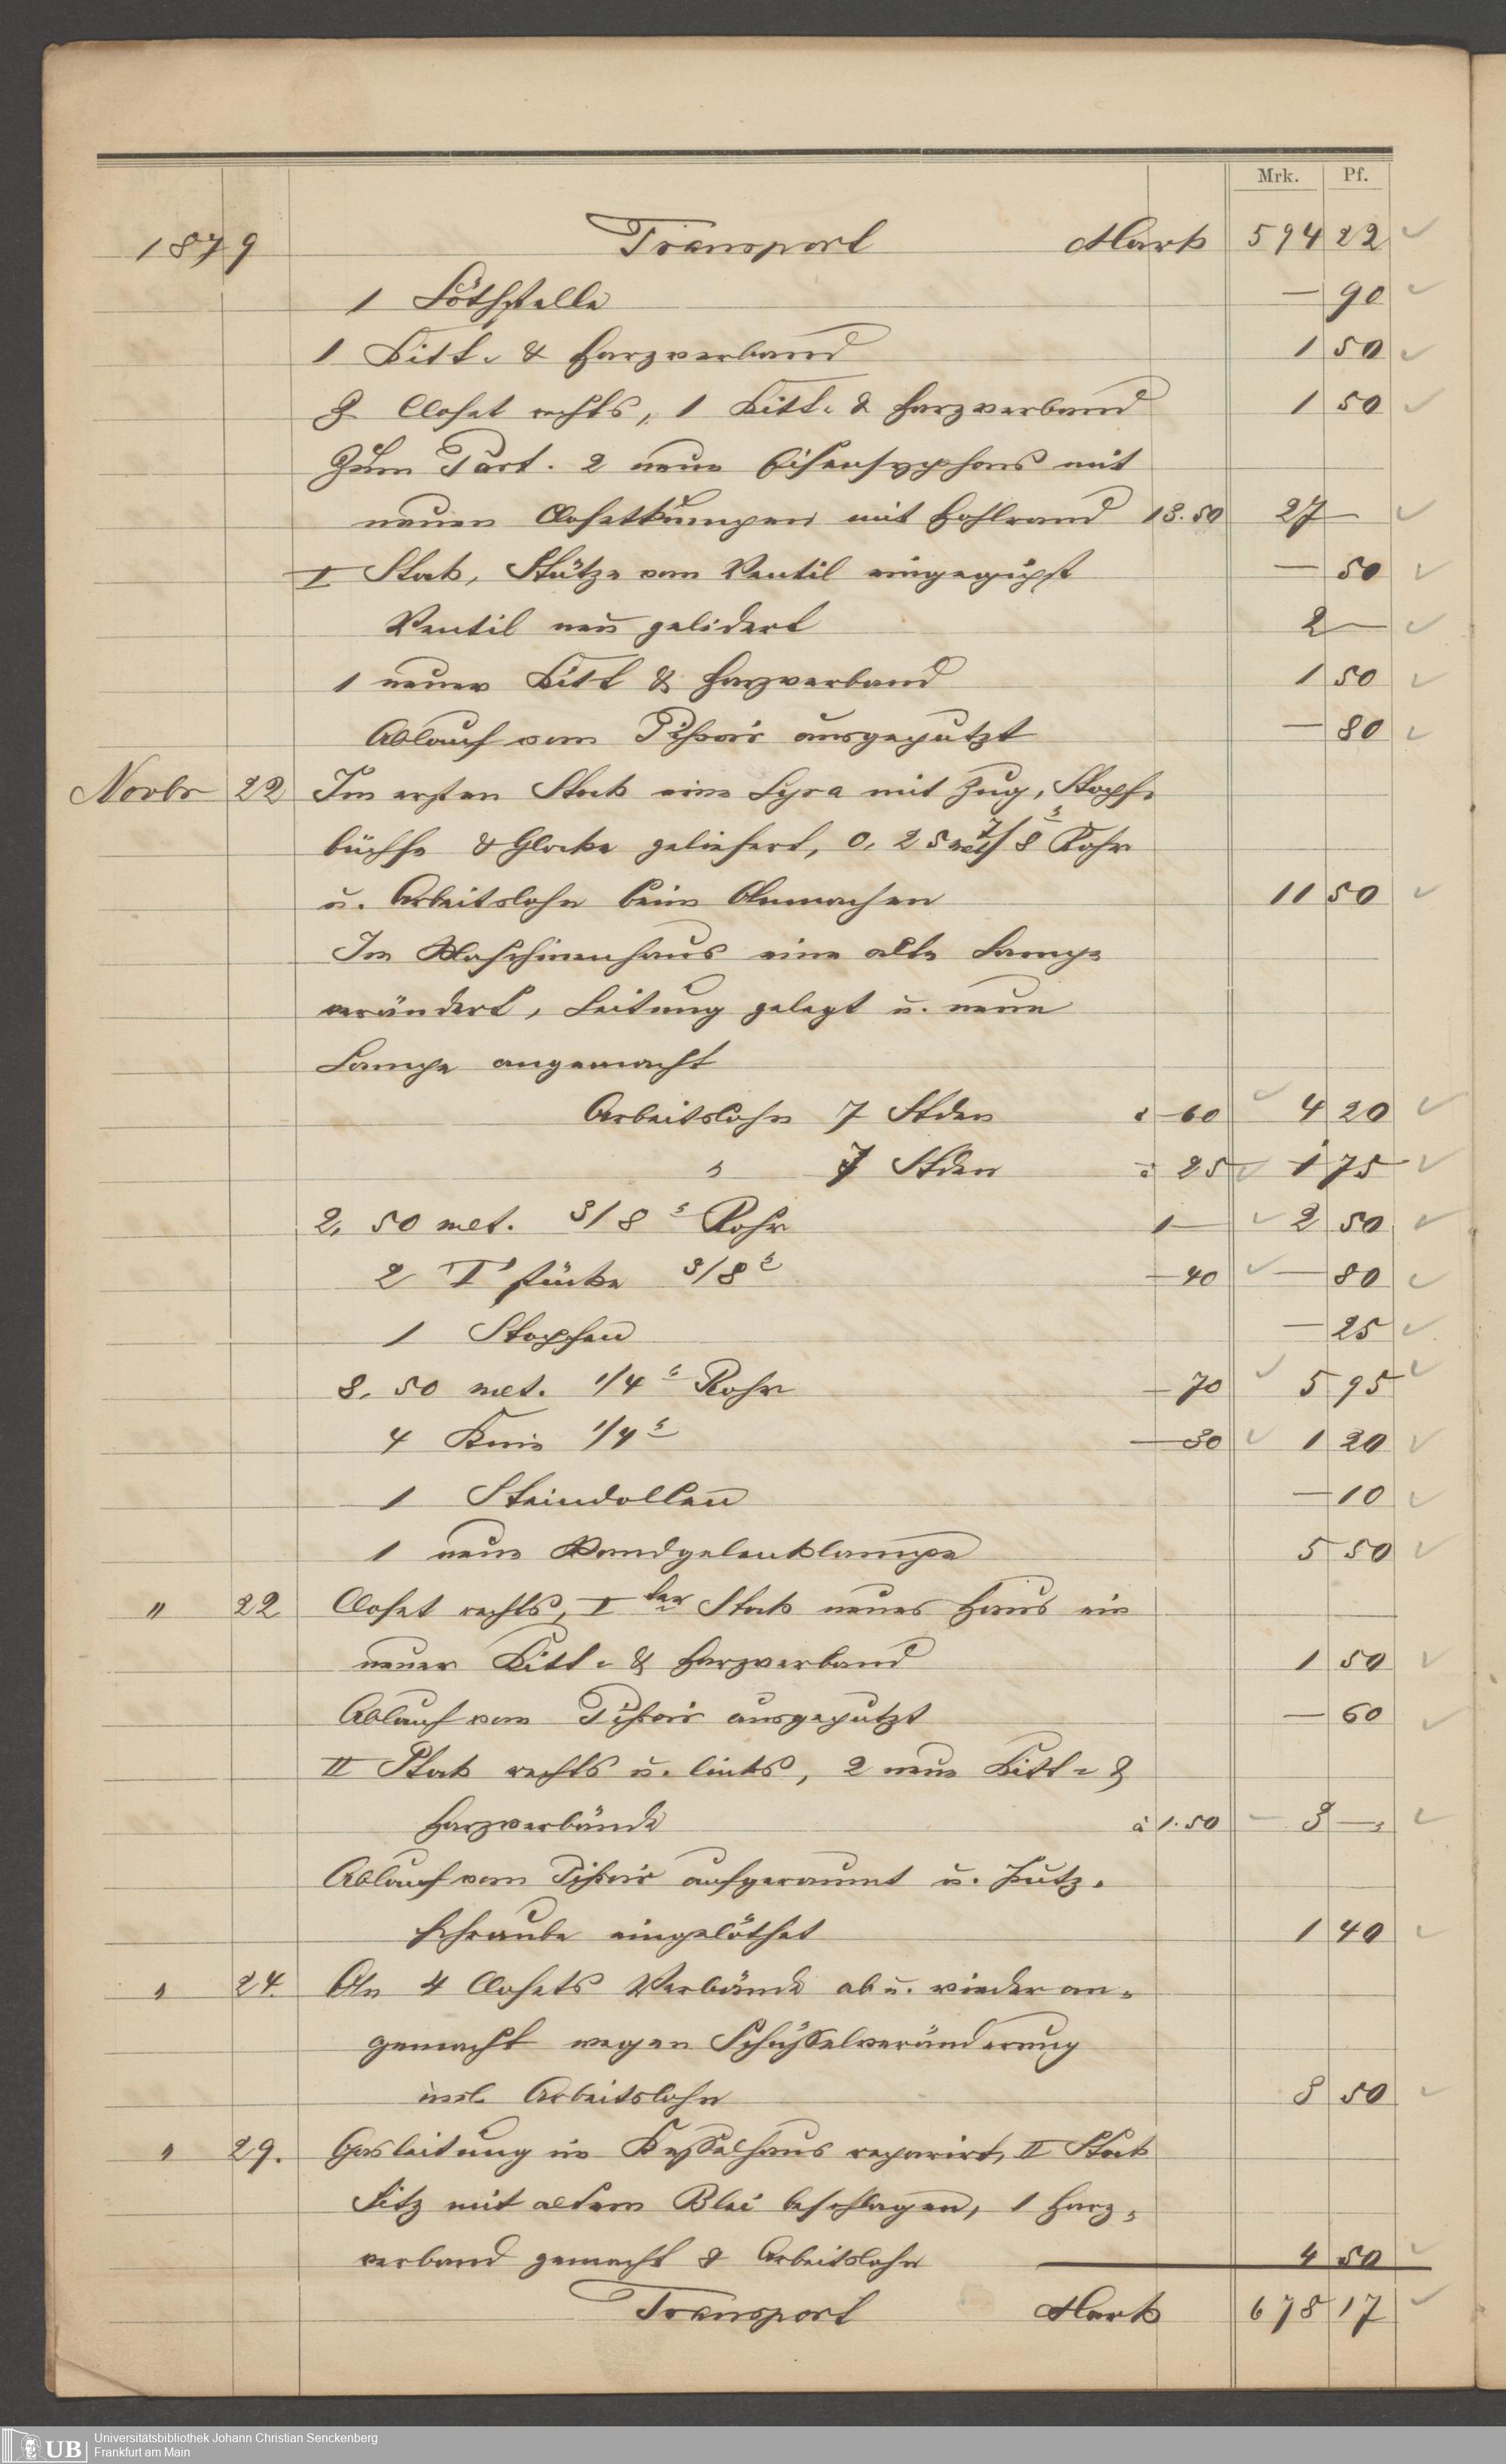 Mrk. Pf.
1879 Transport Mark 594 22
1 Löthstelle — 90
1 Kitt- & Harzverband 1 50
2. Closet rechts, 1 Kitt- & Harzverband 1 50
Zum Part. 2 neue Eisensyphons mit
neuen Closetkumpen mit Hohlrand 13.50 27 —
I Stock, Stütze vom Ventil eingegipst — 50
Ventil neu gelidert 2 —
1 neuer Kitt & Harzverband 1 50
Ablauf vom Pissoir ausgeputzt — 80
Novbr 22 Im ersten Stock eine Lyra mit Zug, Stopf-
büchse & Glocke geliefert, 0,25 met 7/8" Rohr
u. Arbeitslohn beim Anmachen 11 50
Im Maschinenhaus eine alte Lampe
verändert, Leitung gelegt u. neue
Lampe angemacht
Arbeitslohn 7 Stden à — 60 4 20
" 7 Stden à 25 1 75
2,50 met. 3/8" Rohr 1 — 2 50
2 T stücke 3/8" — 40 — 80
1 Stopfen — 25
8,50 met. 1/4" Rohr — 70 5 95
4 Knie 1/4" — 30 1 20
1 Steindollen — 10
1 neue Wandgelenklampe 5 50
" 22 Closet rechts, I ter Stock neues Haus ein
neuer Kitt- & Harzverband 1 50
Ablauf vom Pissoir ausgeputzt — 60
II Stock rechts u. links, 2 neue Kitt- &
Harzverbände à 1.50 3 —
Ablauf vom Pissoir aufgeraumt u. Putz-
schraube eingelöthet 1 40
" 24. An 4 Closets Verbände ab u. wieder an-
gemacht wegen Schüsselveränderung
incl. Arbeitslohn 8 50
" 29. Gasleitung im Kesselhaus reparirt, II Stock
Sitz mit altem Blei beschlagen, 1 Harz-
verband gemacht & Arbeitslohn 4 50
Transport Mark 678 17
UB Universitätsbibliothek Johann Christian Senckenberg
Frankfurt am Main